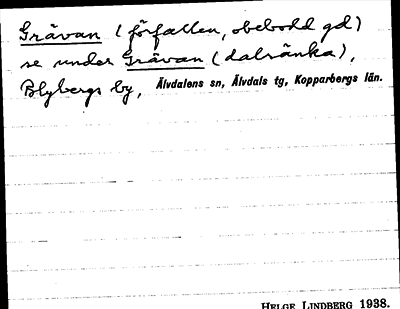 Grävan (förfallen, obebodd gd)
se under Grävan (dalsänka),
Blybergs by, Älvdalens sn, Älvdals tg, Kopparbergs län.
HELGE LINDBERG 1938.